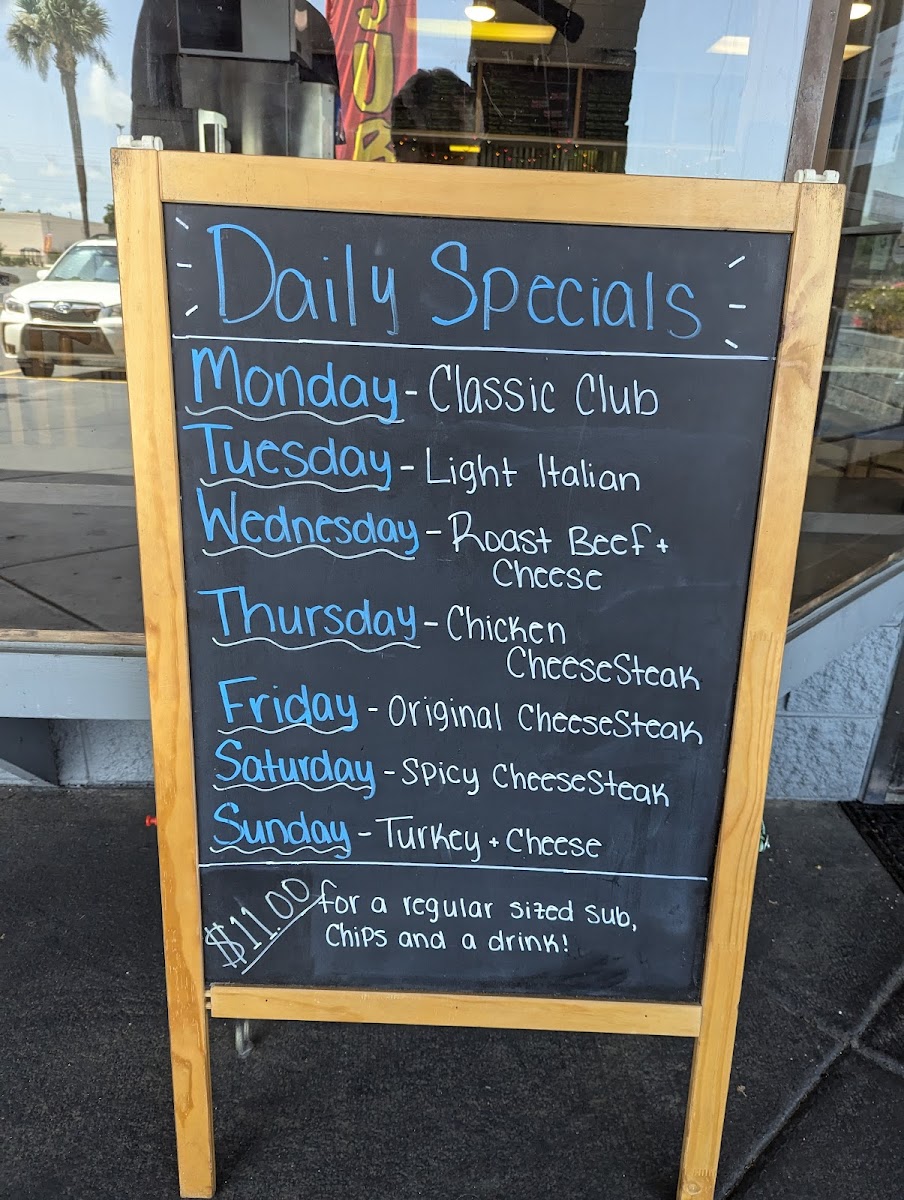 SUB
Daily Specials
Monday - Classic Club
Tuesday - Light Italian
Wednesday - Roast Beef +
Cheese
Thursday - Chicken
CheeseSteak
Friday - Original CheeseSteak
Saturday - Spicy CheeseSteak
Sunday - Turkey + Cheese
$11.00 for a regular sized sub,
Chips and a drink!